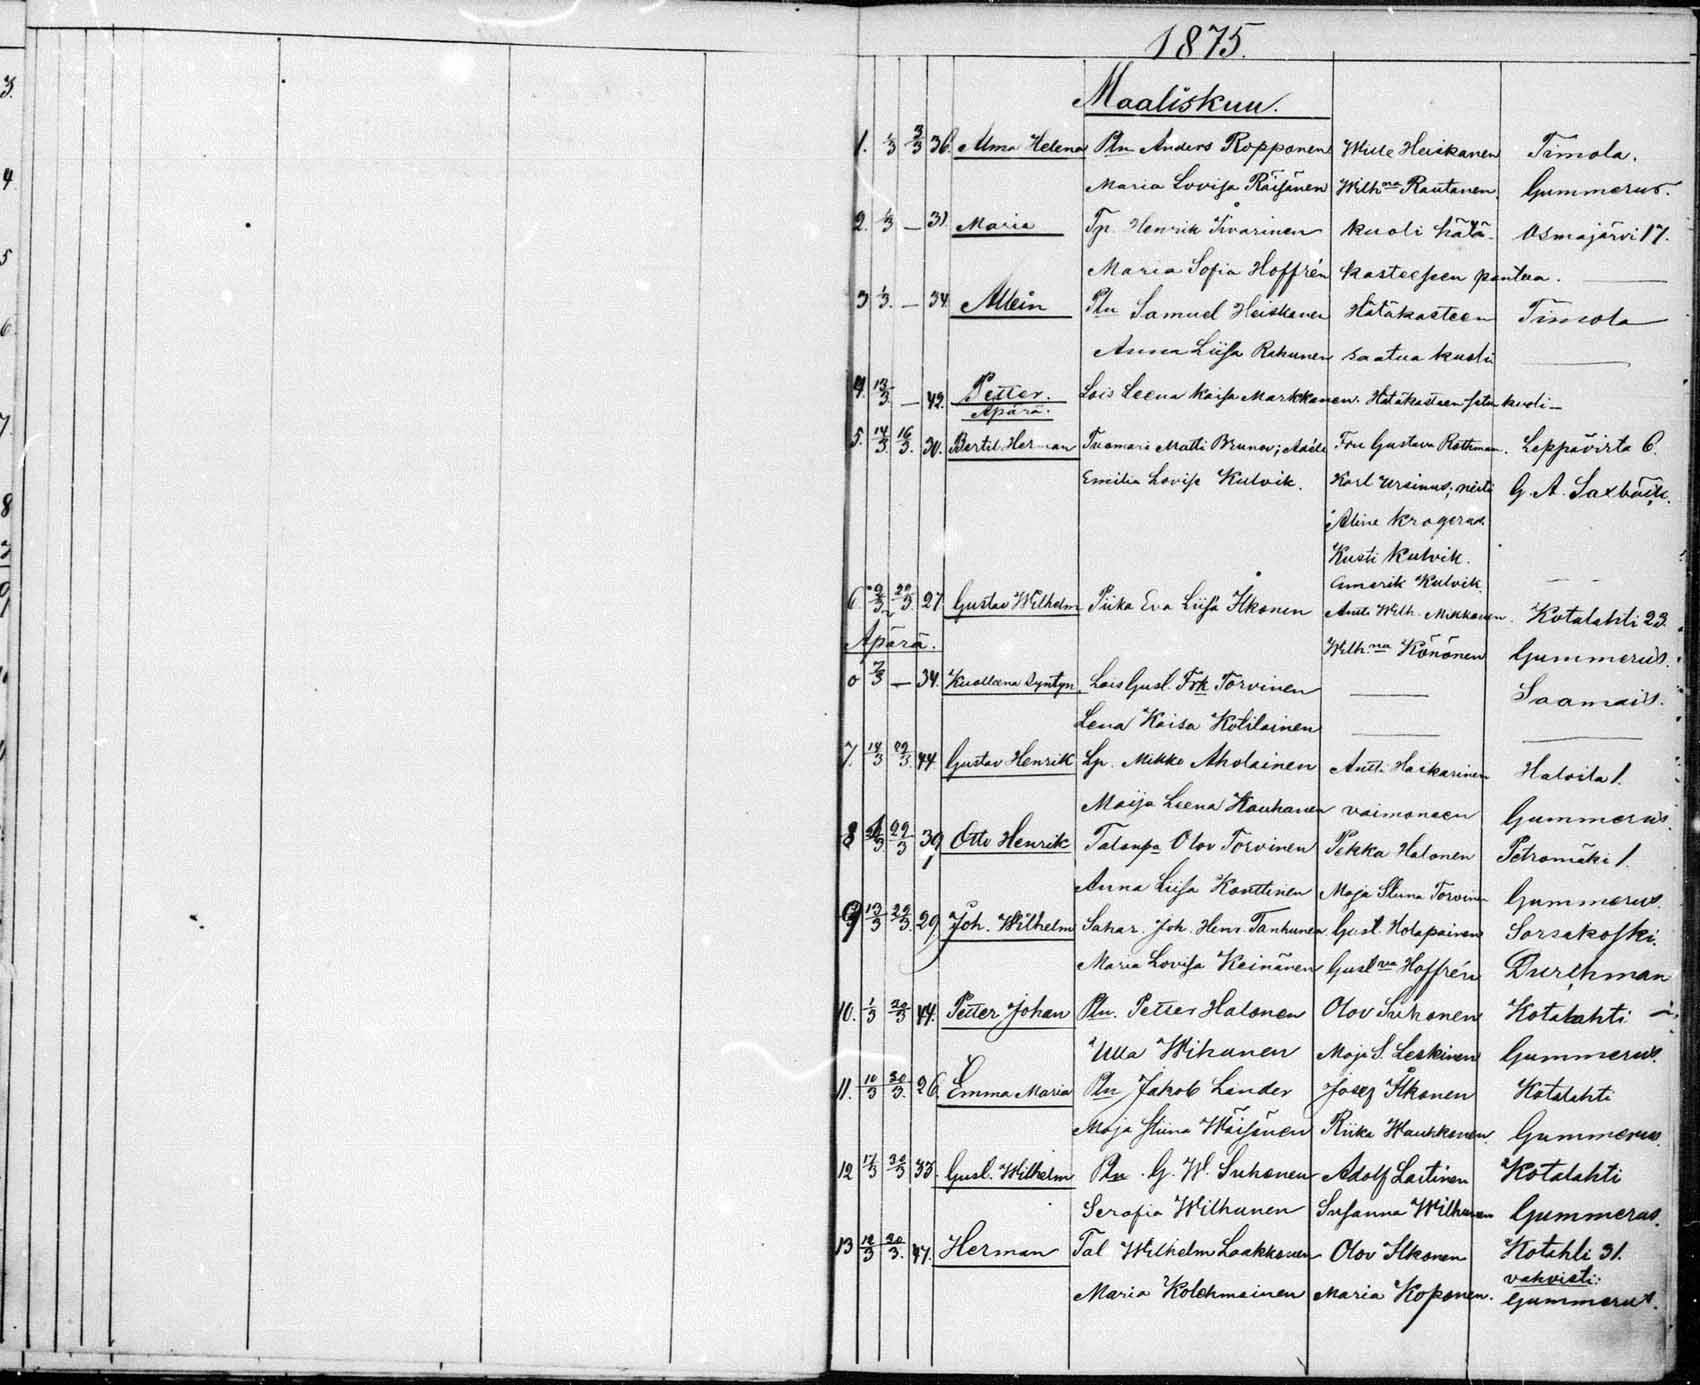 1875.
Maaliskuu.
1. 1/3 3/3 36. Alma Helena Ptn Anders Ropponen Wille Heiskanen Timola.
Maria Lovisa Räisänen Wilh:na Rautanen Gummerus.
2. 1/3 — 31 Maria Tp. Henrik Iivarinen kuoli hätä- Osmajärvi 17.
Maria Sofia Hoffrén kasteesen pantua. —
3 1/3. — 34. Ptn Samuel Heiskanen Hätäkasteen Timola
Anna Liisa Rahunen saatua kuoli —
4. 13/3 — 42. Petter. Lois Leena Kaisa Markkanen. Hätäkasteen kuoli —
Äpärä.
5. 14/3 16/3. 30. Bertil Herman Tuomari Matti Brunov; Adéle Fru Gustava Rothman. Leppävirta 6.
Emilia Lovisa Kulvik. Karl Ursinus; neiti G. A. Saxbäck.
Aline Krogerus
Kusti Kulvik.
Kulvik.
6. 20/3. 27. Gustav Wilhelm Piika Eva Liisa Ikonen Antti Wilh. Mikkonen. Kotalahti 23.
Äpärä. Wilh:na Könönen Gummerus.
0 7/3 — 34. Kuolleena Syntyn. Lois Gust. Torvinen — Saamais.
Lena Kaisa Kotilainen — —
7. 14/3 22/3. 44. Gustav Henrik Lp. Mikko Aholainen Antti Haikarinen Halvila 1.
Maija Leena Kauhanen vaimoneen Gummerus.
8 22/3 39, Otto Henrik Talonpa Olov Torvinen Pekka Halonen Petromäki 1.
Anna Liisa Konttinen Maja Stiina Torvinen Gummerus.
9 13/3 22/3. 29, Joh. Wilhelm Sahar. Joh. Henr. Tanhunen Gust. Holapainen Sorsakoski.
Maria Lovisa Keinänen Gust:va Hoffrén Durchman
10. 1/3 20/3 44. Petter Johan Ptn. Petter Halonen Olov Suhonen Kotalahti —
Ulla Wihanen Maja S. Leskinen Gummerus.
11. 10/3 30/3. 26. Emma Maria Ptn Jakob Lander Josef Ikonen Kotalahti
Maja Stiina Wäisänen Riika Gummerus.
12 17/3 30/3 33. Gust. Wilhelm Ptn. G. W. Suhonen Adolf Laitinen Kotalahti
Serafia Wilhunen Susanna Wilhunen Gummerus.
13 12/3 30/3. 47. Herman Tal Wilhelm Laakkonen Olov Ikonen Kotahti 31.
vahvisti:
Maria Kolehmainen Maria Koponen. Gummerus.